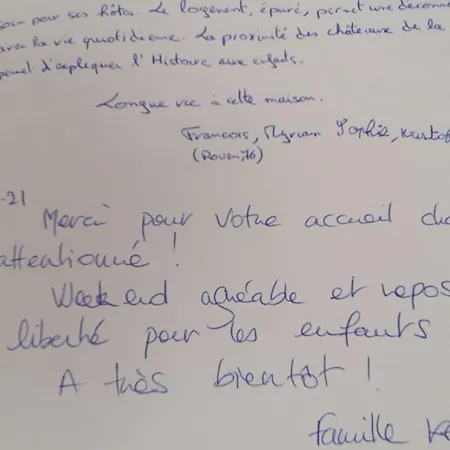 soin pour ses hôtes. Le logement, épuré, permet une déconne
avec la vie quotidienne. La proximité des châteaux de la
permet d'expliquer l'Histoire aux enfants.
Longue vie à cette maison.
Francois, Myriam Sophie,
(Rouen, 76)
-21
Merci pour votre accueil cha
attentionné !
Weekend agréable et repos
liberté pour les enfants
A très bientôt !
famille